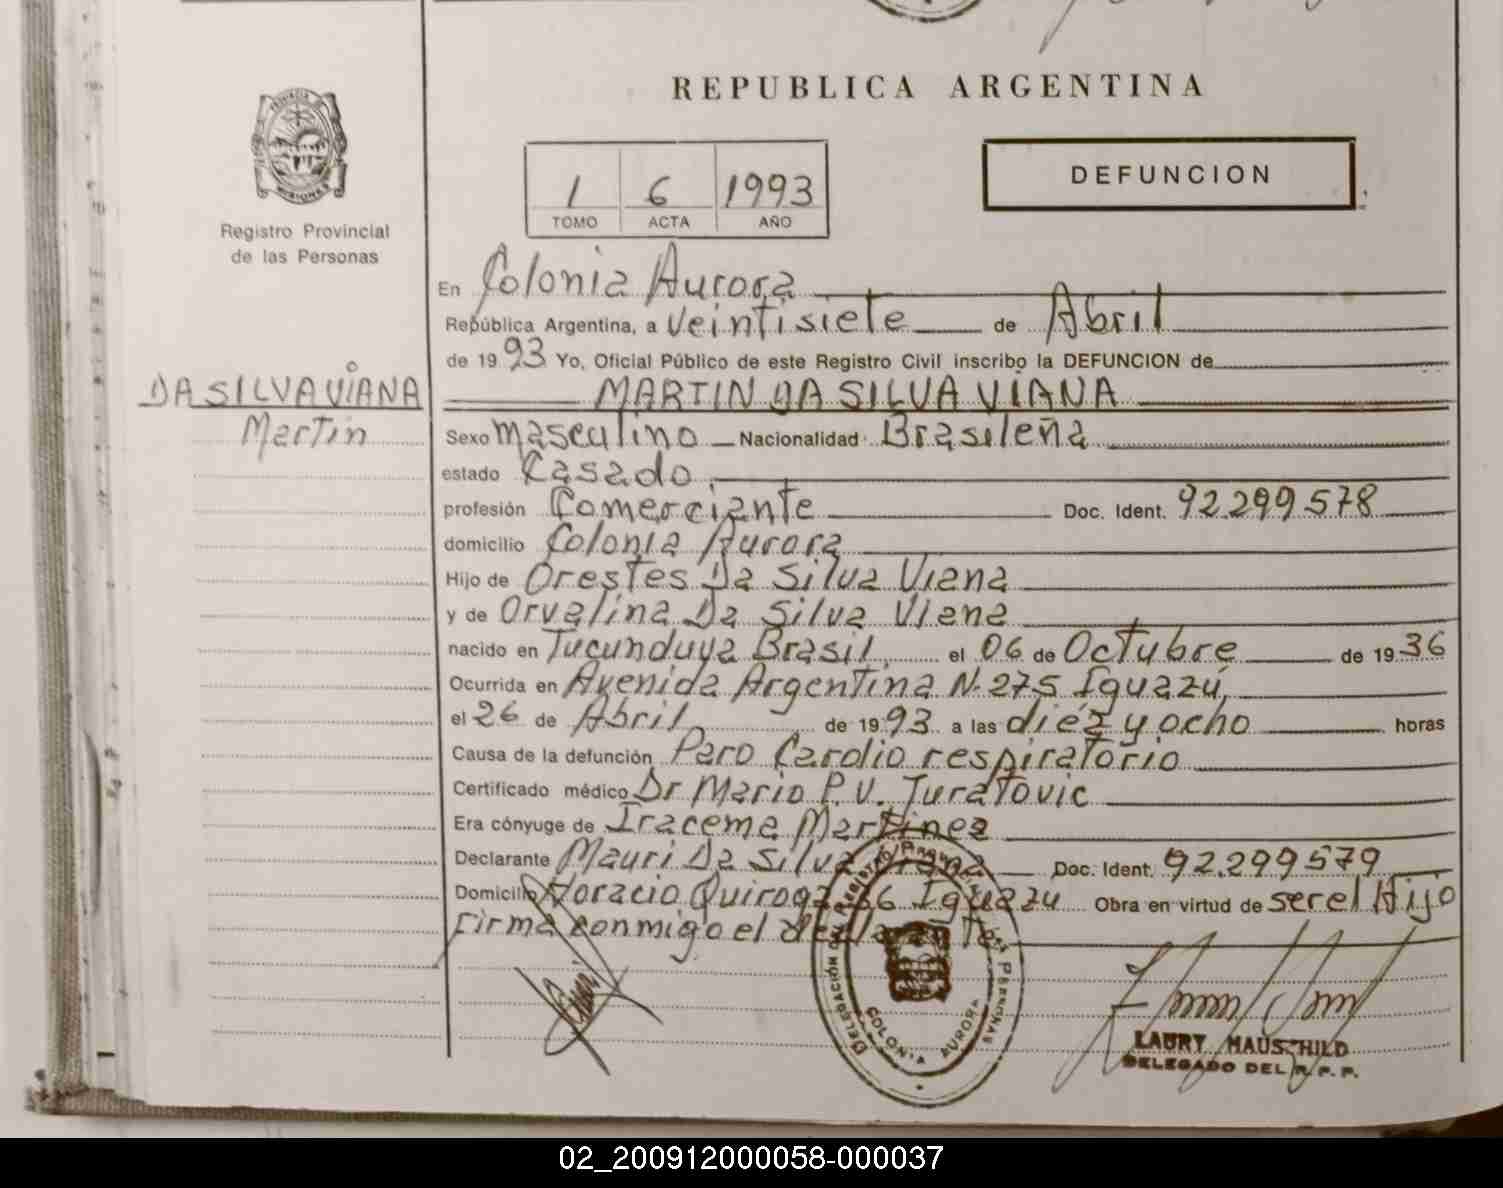 REPUBLICA ARGENTINA
DEFUNCION
1 6 1993
TOMO ACTA AÑO
PROVINCIA DE MISIONES
Registro Provincial
de las Personas
DA SILVA VIANA
Martin
En Colonia Aurora
República Argentina, a Veintisiete de Abril
de 1993 Yo, Oficial Público de este Registro Civil inscribo la DEFUNCION de
MARTIN DA SILVA VIANA
Sexo Masculino Nacionalidad Brasileña
estado Casado
profesión Comerciante Doc. Ident. 92.299578
domicilio Colonia Aurora
Hijo de Orestes Da Silva Viana
y de Orvalina Da Silva Viana
nacido en Tucunduva Brasil, el 06 de Octubre de 1936
Ocurrida en Avenida Argentina N. 275 Iguazú,
el 26 de Abril de 1993 a las diéz y ocho horas
Causa de la defunción Paro Cardio respiratorio
Certificado médico Dr Mario P. V. Juratovic
Era cónyuge de Iracema Martinez
Declarante Mauri Da Silva Viana Doc. Ident. 92.299579
Domicilio Horacio Quiroga Iguazu Obra en virtud de ser el Hijo
Firma conmigo el declarante
DELEGACIÓN DEL REGISTRO PROVINCIAL DE LAS PERSONAS
COLONIA AURORA
LAURY HAUSCHILD
DELEGADO DEL R. P. P.
02_200912000058-000037